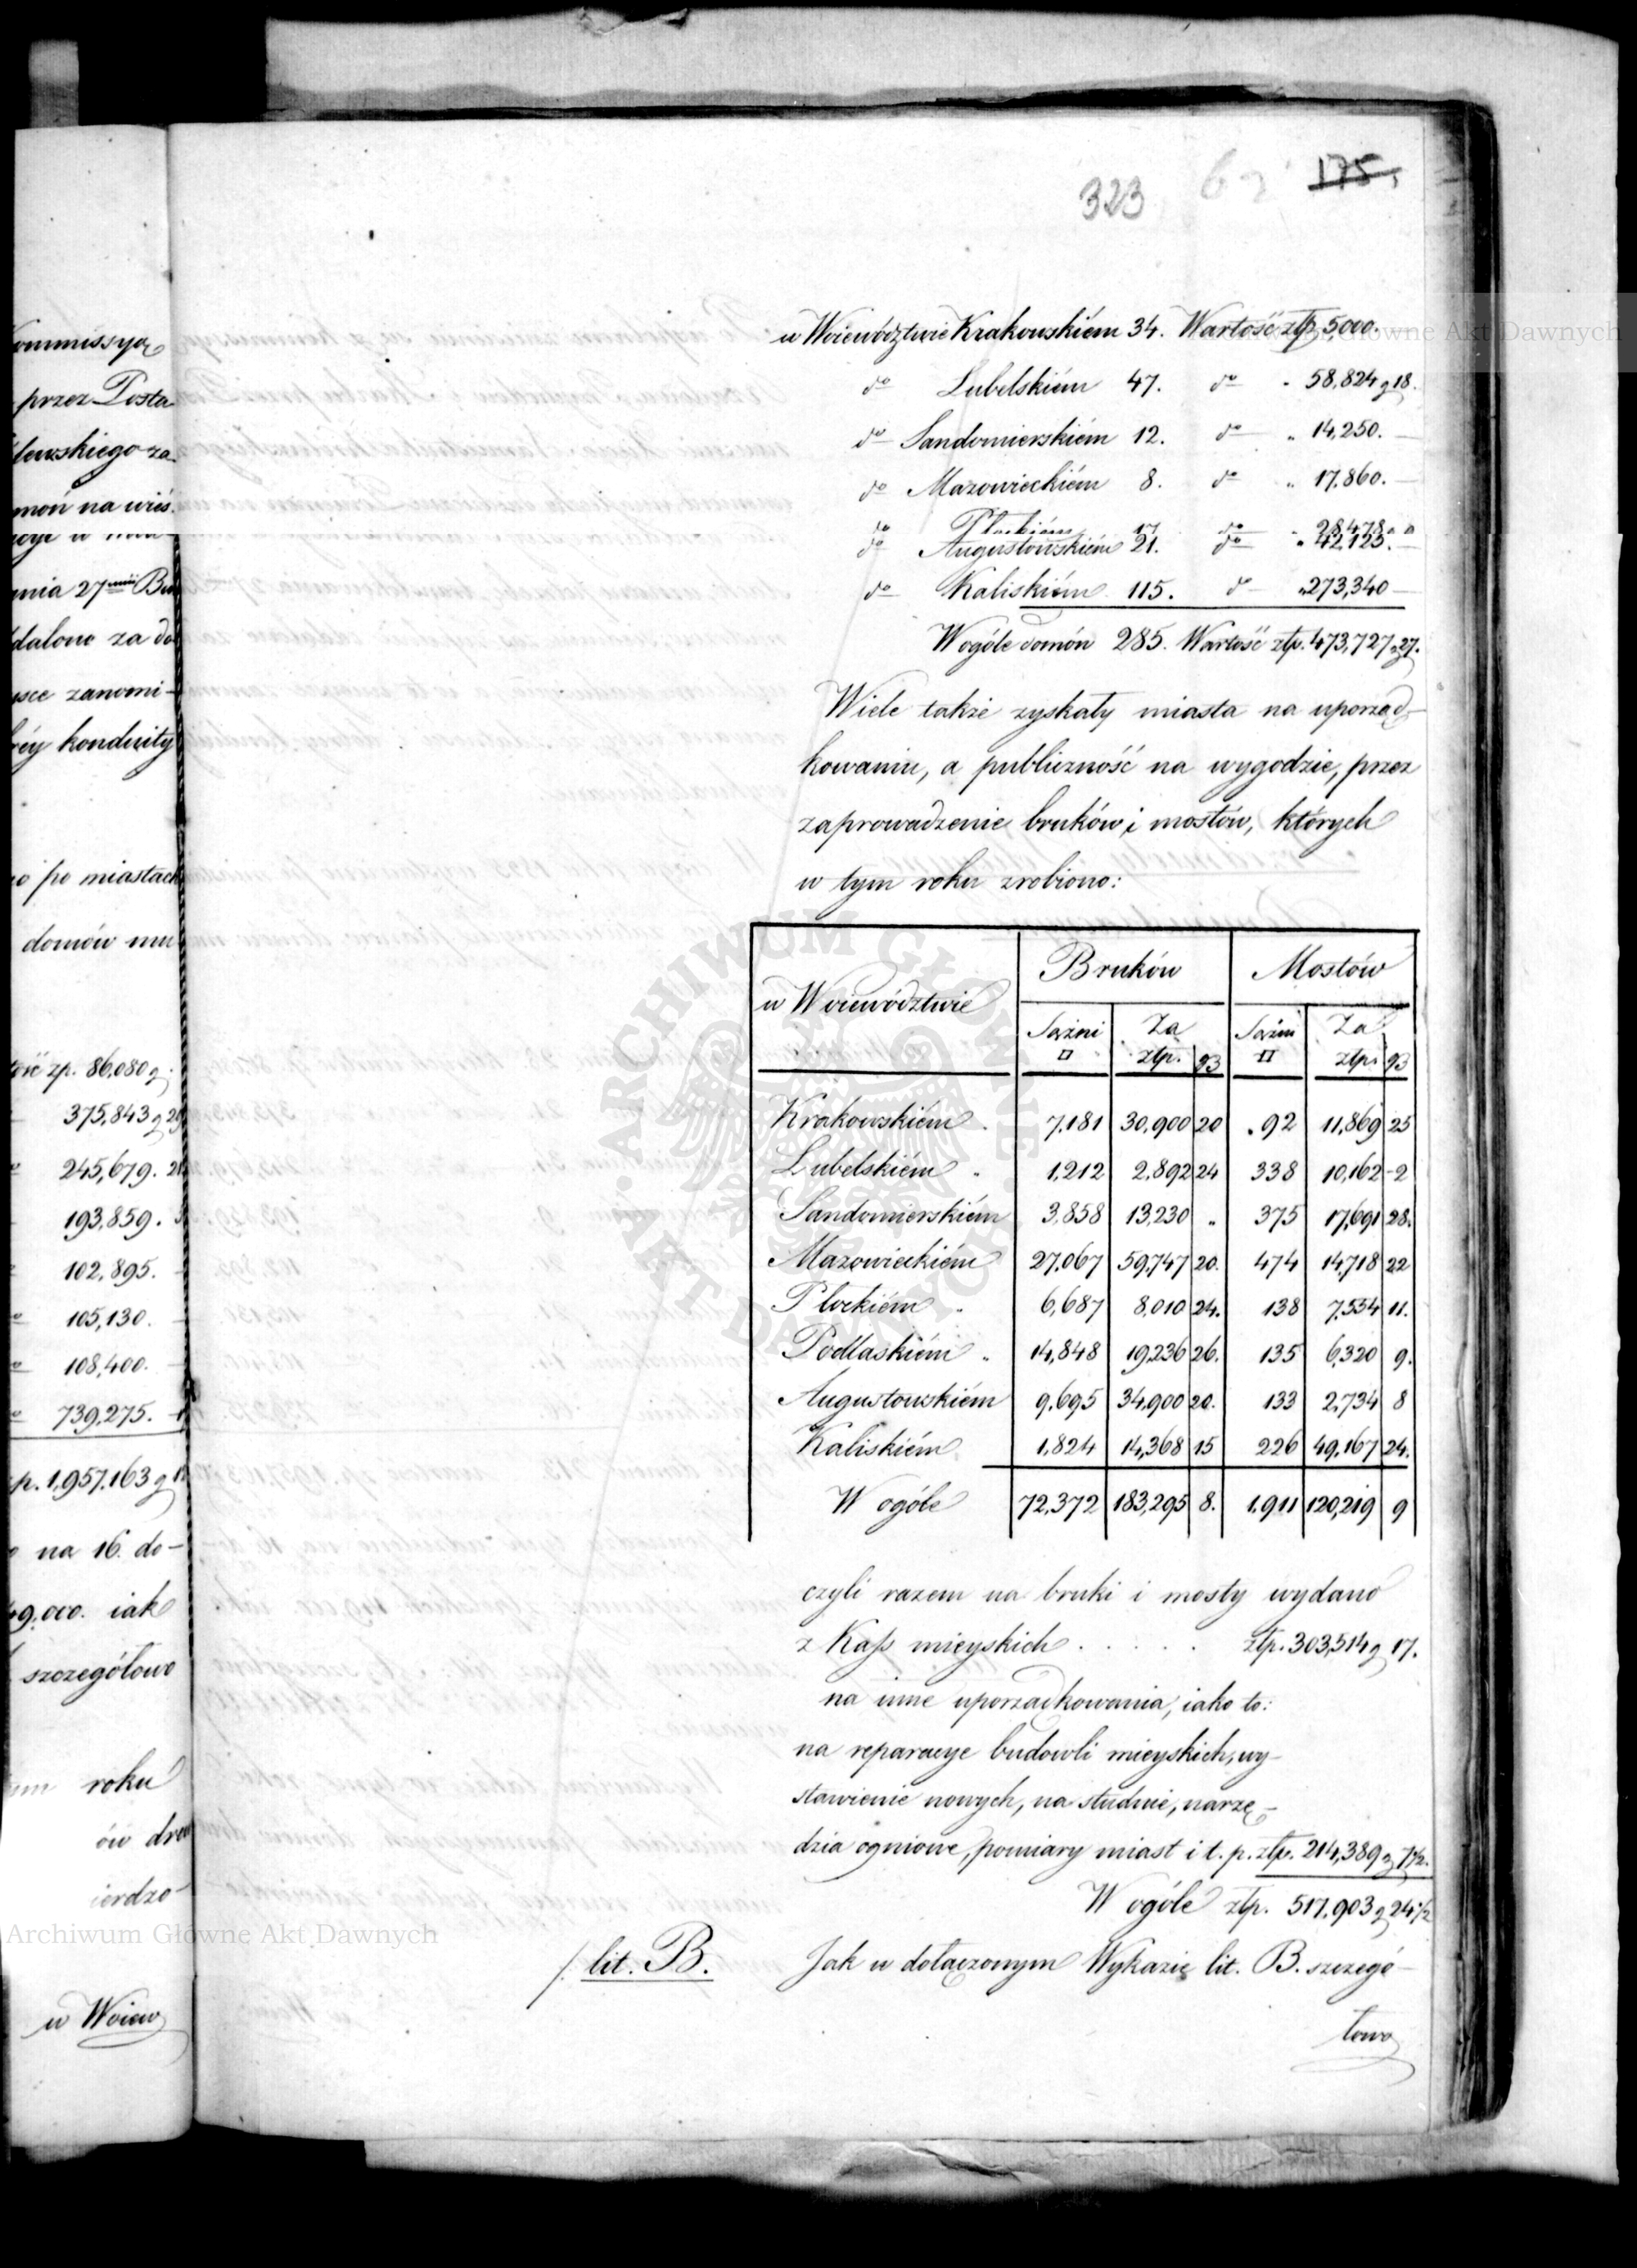 323 175.
w Woiewództwie Krakowskiém 34. Wartość złp. 5000.
do Lubelskiém 47. do " 58,824 g 18.
do Sandomierskiém 12. do " 14,250. —
do Mazowieckiém 8. do " 17,860. —
do Płockiém 17 do " 28,478 " "
do Augustowskiém 21. do " 42,123. —
do Kaliskiém 115. do " 273,340 —
W ogóle domów 285. Wartość złp. 473,727 g 27.
Wiele także zyskały miasta na uporząd-
kowaniu, a publiczność na wygodzie, przez
zaprowadzenie bruków i mostów, których
w tym roku zrobiono:
w Woiewództwie Bruków Mostów
Sążni □ Za złp. gr Sążni □ Za złp. gr
Krakowskiém . 7,181 30,900 20 " 92 11,869 25
Lubelskiém " 1,212 2,892 24 338 10,162 - 2
Sandomierskiém 3,858 13,230 " 375 17,691 28.
Mazowieckiém 27,067 59,747 20. 474 14,718 22
Płockiém . 6,687 8,010 24. 138 7,554 11.
Podlaskiém " 14,848 19,236 26. 135 6,320 9.
Augustowskiém 9,695 34,900 20. 133 2,734 8
Kaliskiém 1,824 14,368 15 226 49,167 24.
W ogóle 72,372 183,295 8. 1,911 120,219 9
czyli razem na bruki i mosty wydano
z Kass mieyskich . . . . . złp. 303,514 g 17.
na inne uporządkowania, iako to:
na reparacye budowli mieyskich, wy-
stawienie nowych, na studnie, narzę-
dzia ogniowe, pomiary miast i t. p. złp. 214,389 g 7 1/2.
W ogóle złp. 517,903 g 24 1/2
/. lit. B. Jak w dołączonym Wykazie lit. B. szczegó-
łowo
Kommissya
przez Posta-
lewskiego za-
mów na wieś.
nia 27 Bu
dalono za do
sce zanomi-
réy konduity
o po miastach
domów mu
tość zp. 86,080 g
375,843 g 29
245,679. 2
193,859.
102,895.
105,130.
108,400.
739,275.
p. 1,957,163 g 1
na 16. do-
49,000. iak
szczegółowo
roku
ów drew
ierdzo-
w Woiew
ARCHIWUM GŁÓWNE
AKT DAWNYCH
Archiwum Główne Akt Dawnych
Archiwum Główne Akt Dawnych